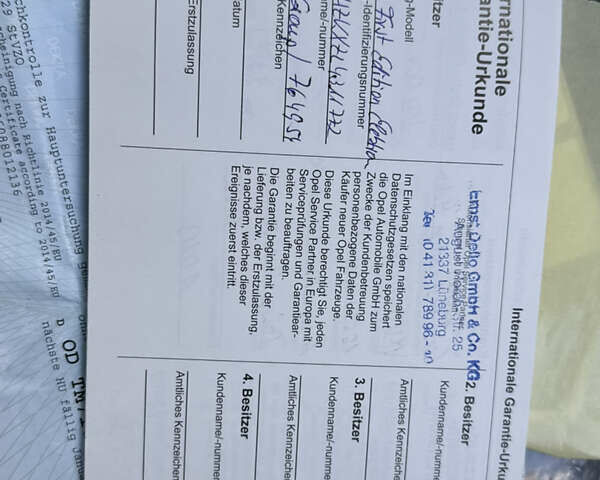 rnationale
rantie-Urkunde
sitzer
g-Modell
First Edition Elektra
-Identifizierungsnummer
ame/-nummer
Kennzeichen
Group / 764954
atum
Erstzulassung
Ernst Dello GmbH & Co. KG
21337 Lüneburg
Tel. (0 41 31) 789 96 - 10
Im Einklang mit den nationalen
Datenschutzgesetzen speichert
die Opel Automobile GmbH zum
Zwecke der Kundenbetreuung
personenbezogene Daten der
Käufer neuer Opel Fahrzeuge.
Diese Urkunde berechtigt Sie, jeden
Opel Service Partner in Europa mit
Serviceprüfungen und Garantiear-
beiten zu beauftragen.
Die Garantie beginnt mit der
Lieferung bzw. der Erstzulassung,
je nachdem, welches dieser
Ereignisse zuerst eintritt.
Internationale Garantie-Urku
2. Besitzer
Kundenname/-numm
Amtliches Kennzeich
3. Besitzer
Kundenname/-numm
Amtliches Kennzeiche
4. Besitzer
Kundenname/-numme
Amtliches Kennzeichen
DEKRA
chkontrolle zur Hauptuntersuchung
29 StVZO
scheinigung nach Richtlinie 2014/45/EU
s Certificate according to 2014/45/EU
/088012136
D OD TM
nächste HU fällig Janu